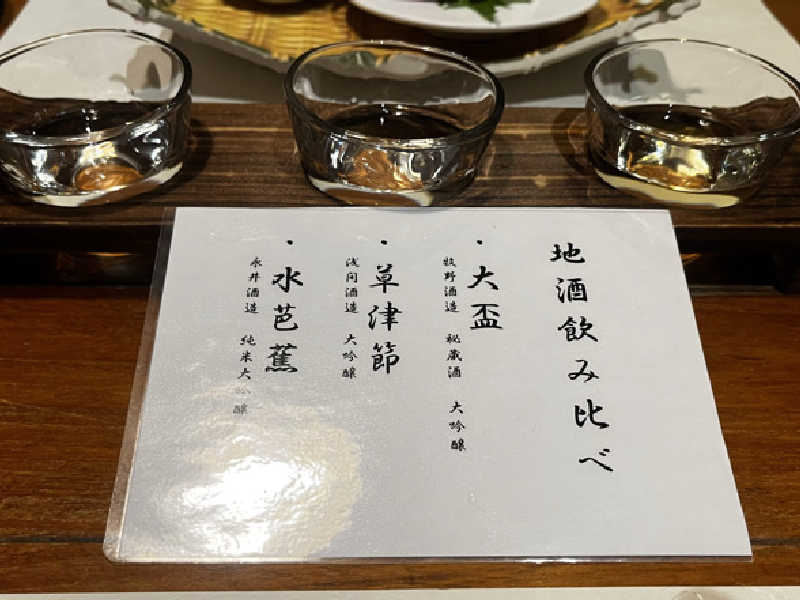 地酒飲み比べ
・大盃
牧野酒造 秘蔵酒 大吟醸
・草津節
浅間酒造 大吟醸
・水芭蕉
永井酒造 純米大吟醸